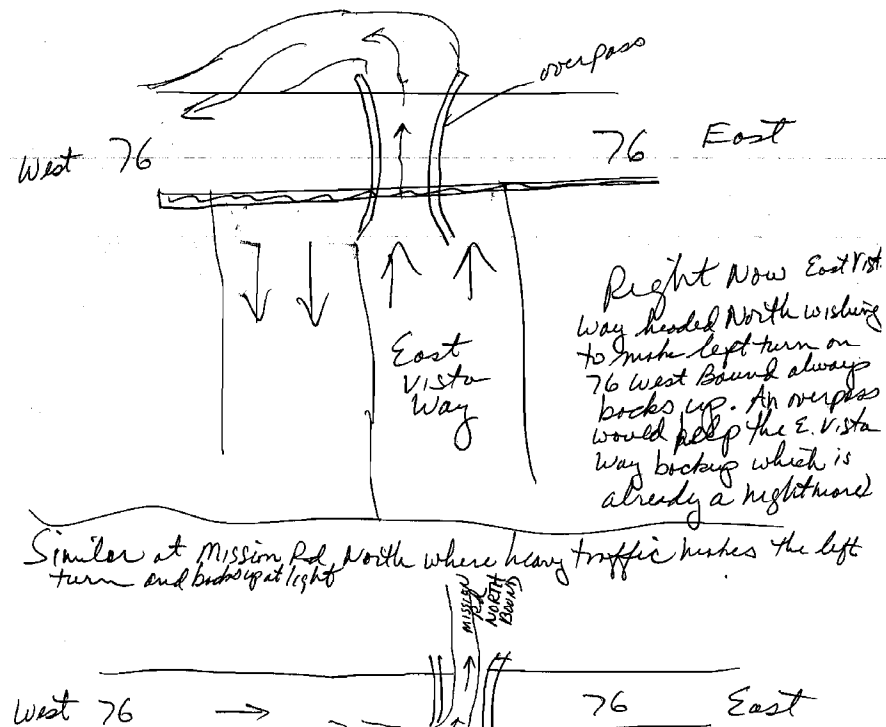 overpass
West 76
76 East
East
Vista
Way
Right Now East Vist
Way headed North wishing
to make left turn on
76 West Bound always
backs up. An overpass
would help the E. Vista
Way backup which is
already a nightmare
Similar at Mission Rd North where heavy traffic makes the left
turn and backs up at light
MISSION
Rd
NORTH
BOUND
West 76
76 East